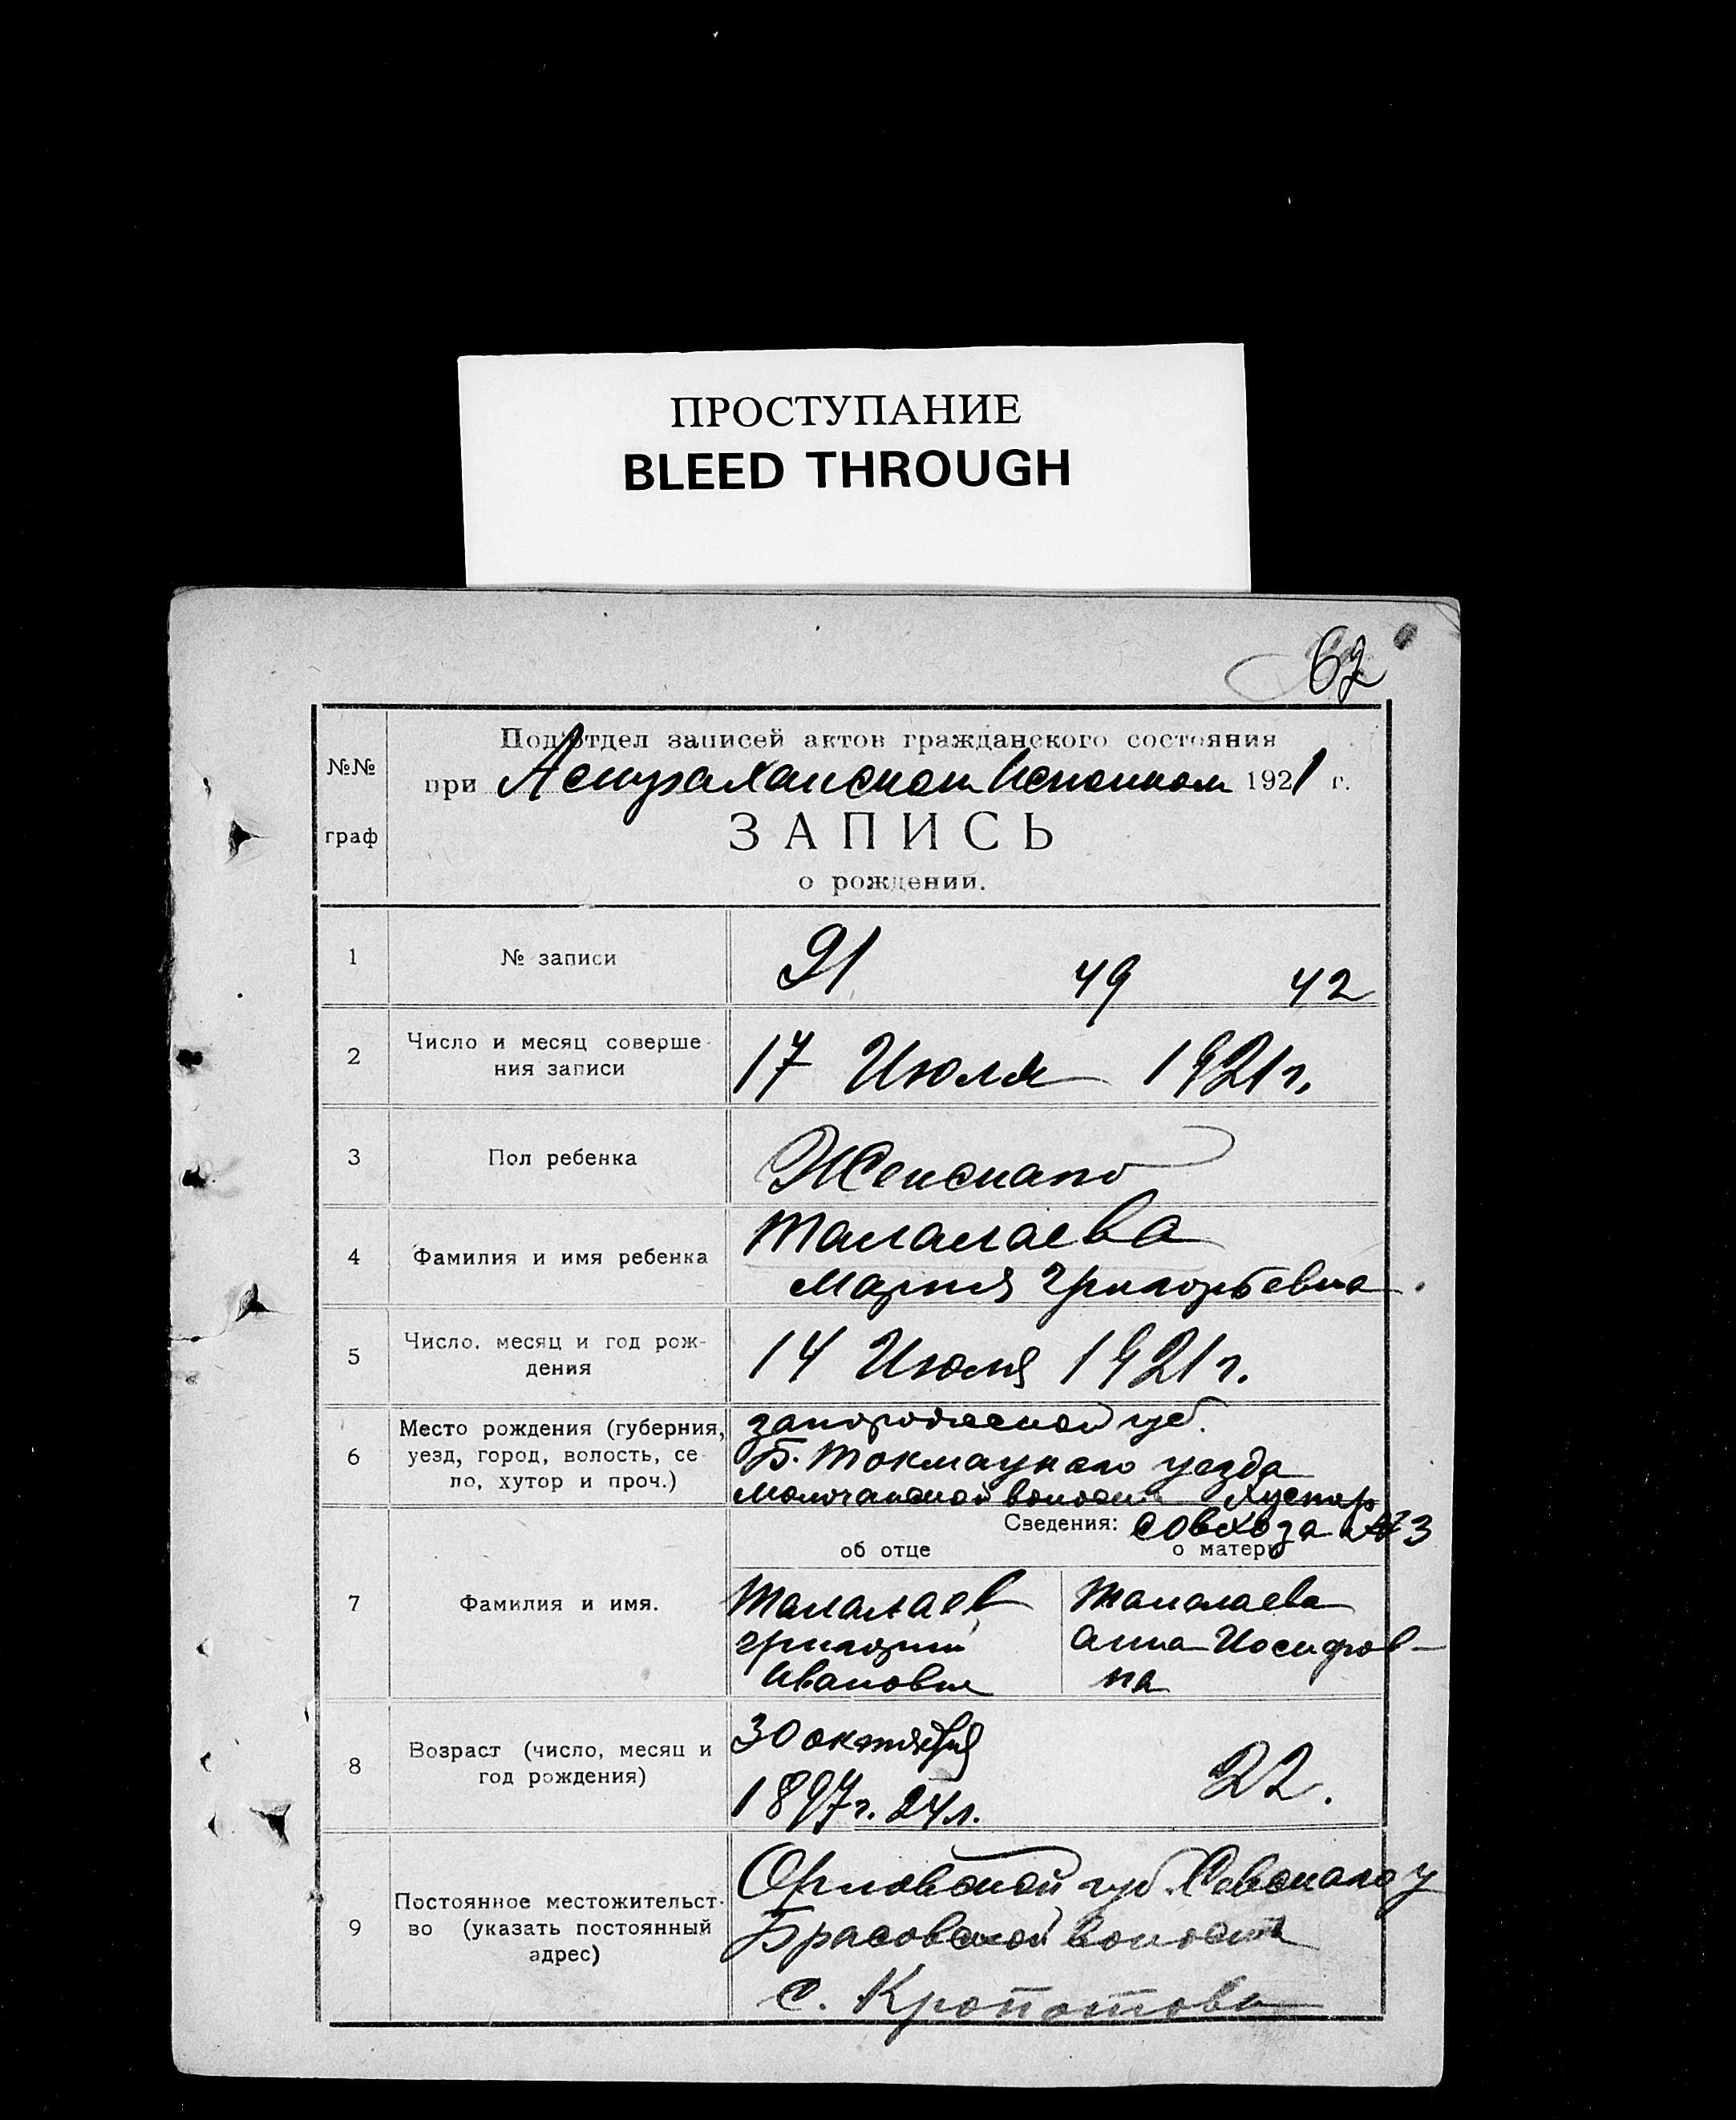 ПРОСТУПАНИЕ
BLEED THROUGH
62
Под'отдел записей актов гражданского состояния
№№
при Астраханском Исполком 1921 г.
граф
ЗАПИСЬ
о рождении.
1 № записи 21 49 42
2 Число и месяц соверше-
ния записи
17 Июля 1921 г.
3 Пол ребенка Женскаго
4 Фамилия и имя ребенка
Талалаева
Мария Григорьевна
5 Число, месяц и год рож-
дения
14 Июля 1921 г.
6 Место рождения (губерния,
уезд, город, волость, се-
ло, хутор и проч.)
запорожской губ.
Б. Токмацкаго уезда
Молочанской волости Хутор
Совхоза №3
Сведения:
об отце о матери
7 Фамилия и имя.
Талалаев
Григорий
Иванович
Талалаева
Анна Иосифов-
на
8 Возраст (число, месяц и
год рождения)
30 октября
1897 г. 24 л.
22.
9 Постоянное местожительст-
во (указать постоянный
адрес)
Орловской губ. Севскаго у
Брасовской волости
с. Кропотова